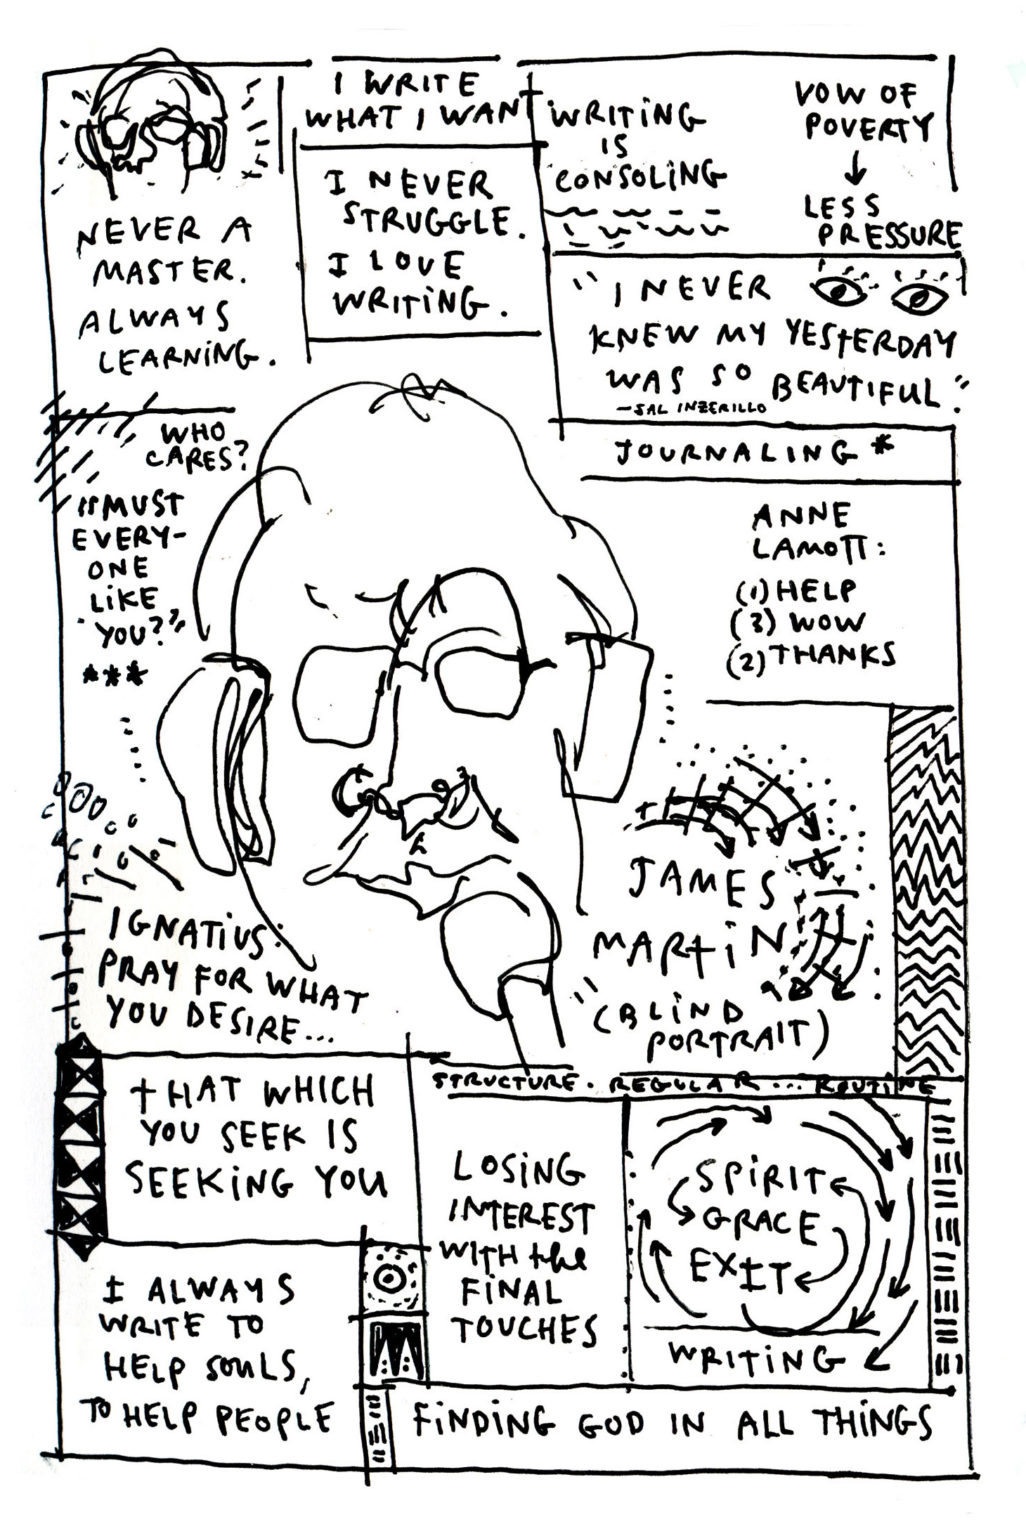 I WRITE
WHAT I WANT
NEVER A
MASTER.
ALWAYS
LEARNING.
I NEVER
STRUGGLE.
I LOVE
WRITING.
WRITING
IS
CONSOLING
VOW OF
POVERTY
LESS
PRESSURE
"I NEVER
KNEW MY YESTERDAY
WAS SO BEAUTIFUL."
-SAL INZERILLO
JOURNALING *
ANNE
LAMOTT:
(1) HELP
(3) WOW
(2) THANKS
WHO
CARES?
"MUST
EVERY-
ONE
LIKE
YOU?"
***
JAMES
MARTIN
(BLIND
PORTRAIT)
IGNATIUS:
PRAY FOR WHAT
YOU DESIRE...
THAT WHICH
YOU SEEK IS
SEEKING YOU
I ALWAYS
WRITE TO
HELP SOULS,
TO HELP PEOPLE
STRUCTURE. REGULAR... ROUTINE
LOSING
INTEREST
WITH the
FINAL
TOUCHES
SPIRIT
GRACE
EXIT
WRITING
FINDING GOD IN ALL THINGS